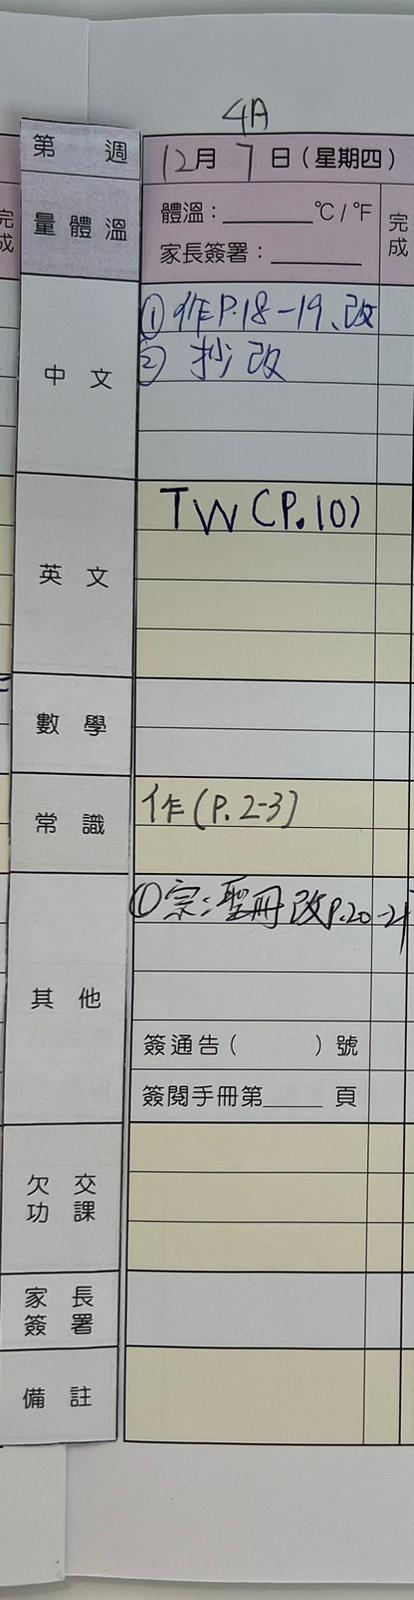 4A
第 週 12月7日(星期四)
量體溫 體溫:______℃/℉ 完成
家長簽署:______
完成
中文 ①作P.18-19、改
② 抄改
英文 TW(P.10)
數學
常識 作(P.2-3)
其他 ①宗:聖冊改P.20-21
簽通告( )號
簽閱手冊第____頁
欠交功課
家長簽署
備註